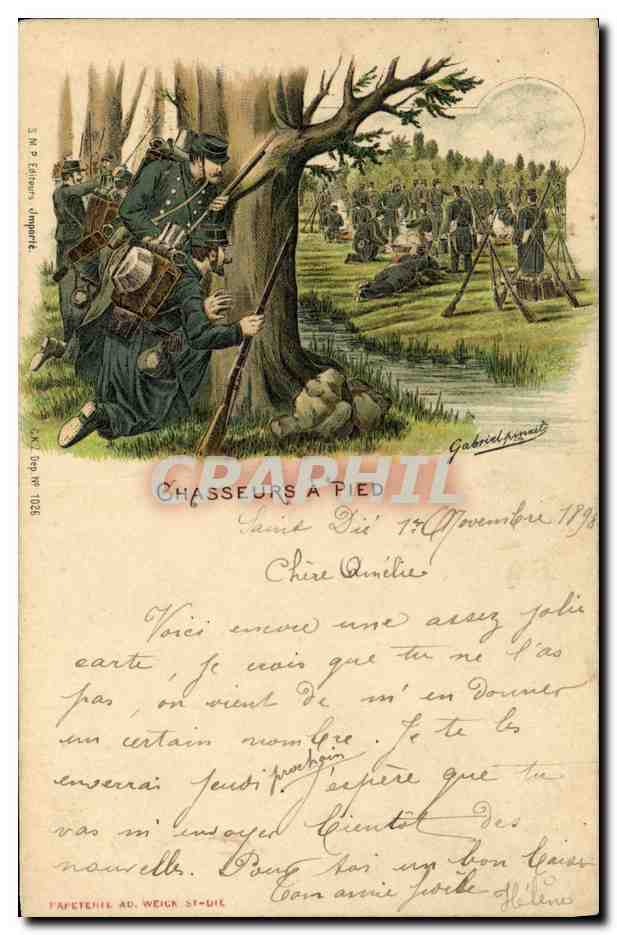 S.M.P. Editeurs Importé.
G.K.Z. Dep. No 1026
Gabriel
CRAPHIL
CHASSEURS À PIED
Saint Dié 17 Novembre 1898
Chère Amélie
Voici encore une assez jolie
carte, je crois que tu ne l'as
pas, on vient de m'en donner
un certain nombre. Je te les
enverrai jeudi prochain. J'espère que tu
vas m'envoyer bientôt des
nouvelles. Pour toi un bon baiser
Ton amie
Hélène
PAPETERIE AD. WEICK ST-DIÉ